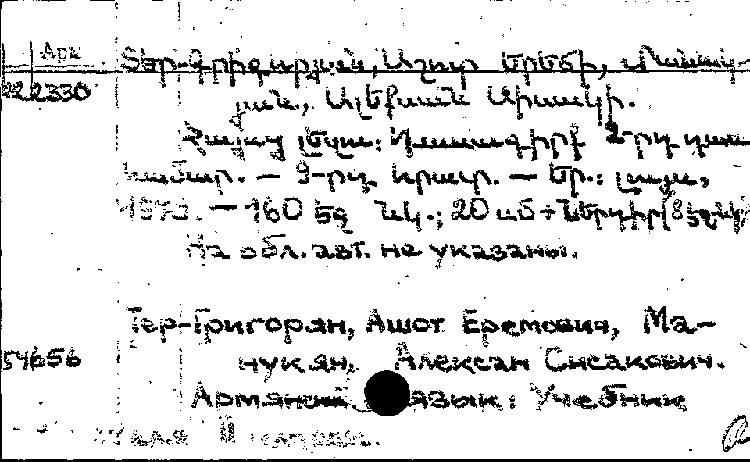 Арм
Տեր-Գրիգորյան, Աշոտ Երեմի, Մանուկ-
222330
յան, Ալեքսան Սիսակի.
Հայոց լեզու: Դասագիրք 2-րդ դաս
համար. — 9-րդ հրատ. — Եր.: Լույս,
1573. — 160 էջ նկ.; 20 սմ + Ներդիր (8 էջ նկ)
На обл. авт. не указаны.
Тер-Григорян, Ашот Еремович, Ма-
54656
нукян, Алексан Сисакович.
Армянский язык: Учебник
для II